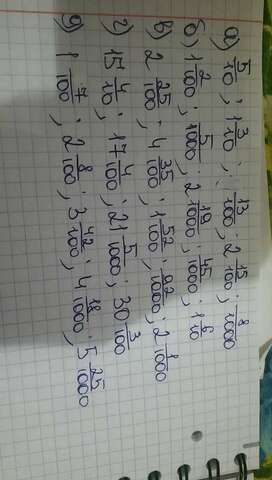 а) 5/10; 1 3/10; ; 13/100; 2 12/100; 8/1000
б) 1 2/100; 5/1000; 2 19/1000; 45/1000; 1 6/10
в) 2 25/100; 4 35/100; 1 52/1000; 92/1000; 2 1/1000
г) 15 4/10; 17 4/100; 21 5/1000; 30 3/100
д) 1 7/100; 2 8/100; 3 42/100; 4 18/1000; 5 25/1000